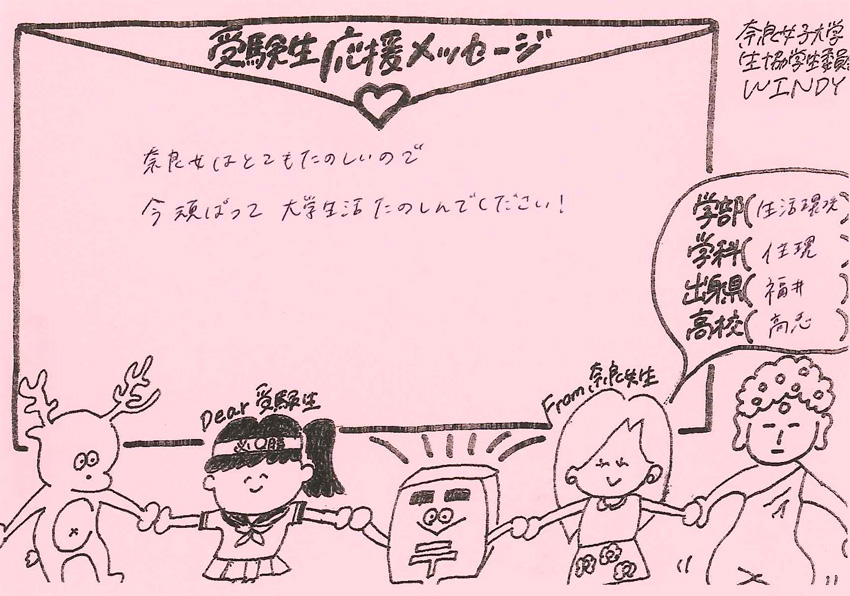 受験生応援メッセージ
奈良女子大学
生協学生委員
WINDY
奈良女はとてもたのしいので
今頑ばって 大学生活たのしんでください!
学部(生活環境)
学科(住環
出身県(福井)
高校(高志)
Dear 受験生
From 奈良女生
必〇勝
〒